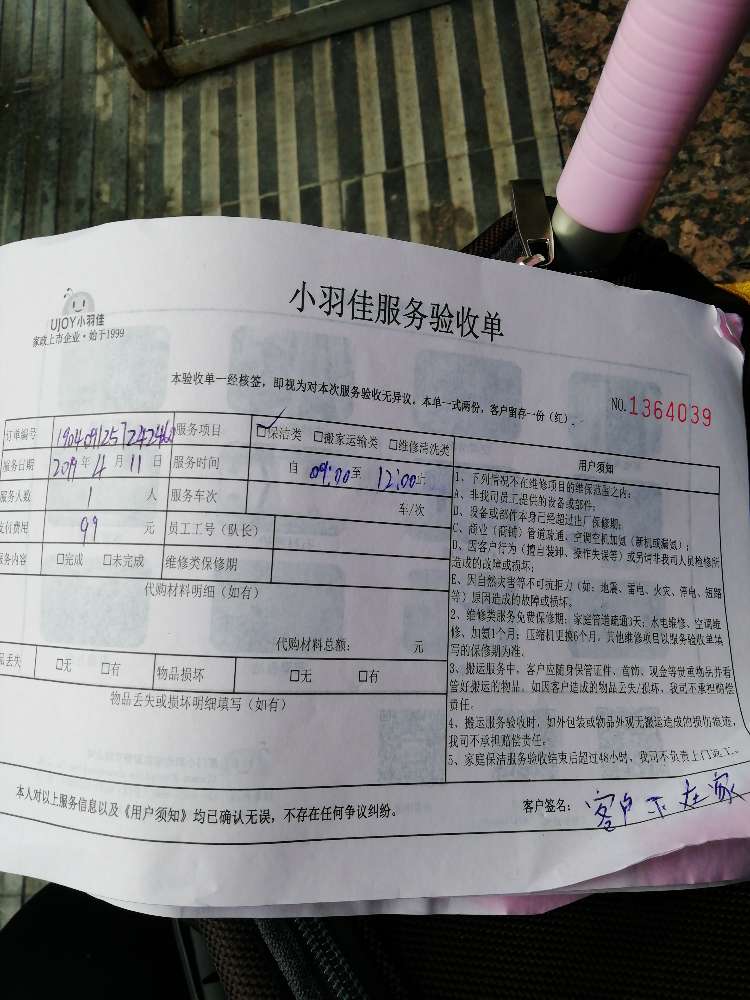 UJOY小羽佳
家政上市企业·始于1999
小羽佳服务验收单
本验收单一经核签，即视为对本次服务验收无异议。本单一式两份，客户留存一份（红）。
NO.1364039
订单编号 服务项目 □保洁类 □搬家运输类 □维修清洗类
服务日期 2019年4月11日 服务时间 自 09:00 至 12:00 止
服务人数 1 人 服务车次 车/次
支付费用 99 元 员工工号（队长）
服务内容 □完成 □未完成 维修类保修期
代购材料明细（如有）
代购材料总额： 元
品丢失 □无 □有 物品损坏 □无 □有
物品丢失或损坏明细填写（如有）
用户须知
1、下列情况不在维修项目的维保范围之内：
A、非我司员工提供的设备或部件；
B、设备或部件本身已经超过出厂保修期；
C、商业（商铺）管道疏通、空调空机加氨（新机或漏氨）；
D、因客户行为（擅自装卸、操作失误等）或另请非我司人员检修所
造成的故障或损坏；
E、因自然灾害等不可抗拒力（如：地震、雷电、火灾、停电、短路
等）原因造成的故障或损坏。
2、维修类服务免费保修期：家庭管道疏通3天；水电维修、空调维
修、加氨1个月；压缩机更换6个月，其他维修项目以服务验收单填
写的保修期为准。
3、搬运服务中，客户应随身保管证件、首饰、现金等贵重物品并看
管好搬运的物品。如因客户造成的物品丢失/损坏，我司不承担赔偿
责任。
4、搬运服务验收时，如外包装或物品外观无搬运造成的损伤痕迹，
我司不承担赔偿责任；
5、家庭保洁服务验收结束后超过48小时，我司不负责上门返工。
本人对以上服务信息以及《用户须知》均已确认无误，不存在任何争议纠纷。
客户签名： 客户不在家